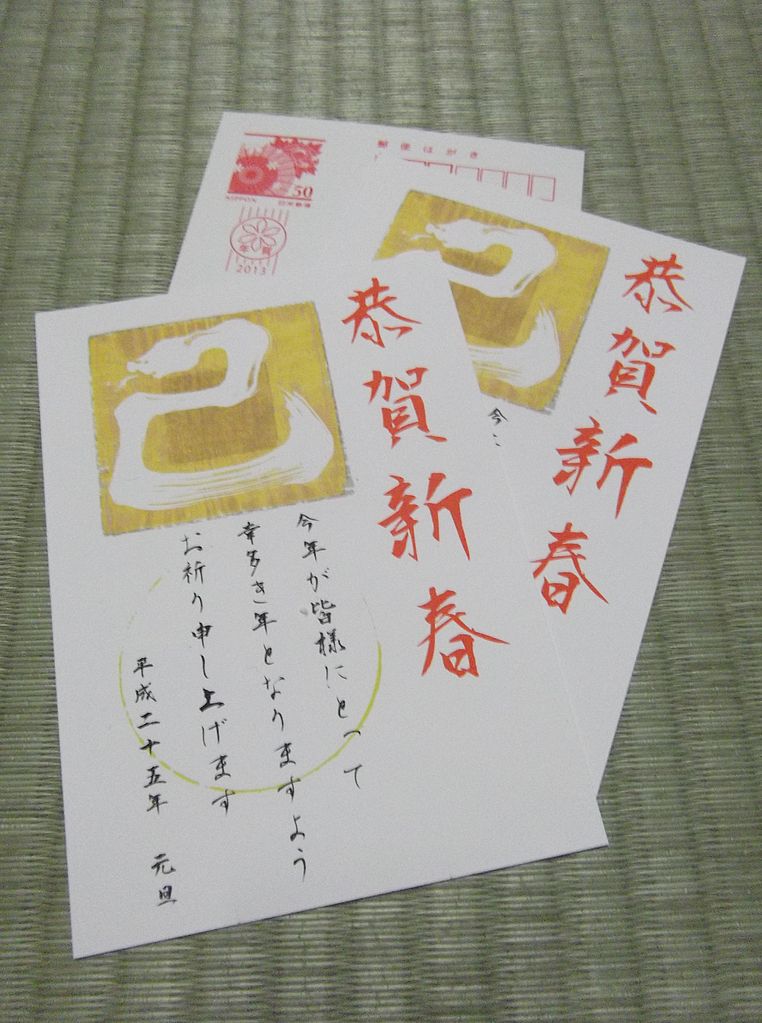 恭賀新春
巳
今年が皆様にとって
幸多き年となりますよう
お祈り申し上げます
平成二十五年 元旦
恭賀新春
巳
今
郵便はがき
50
NIPPON 日本郵便
年賀
2013